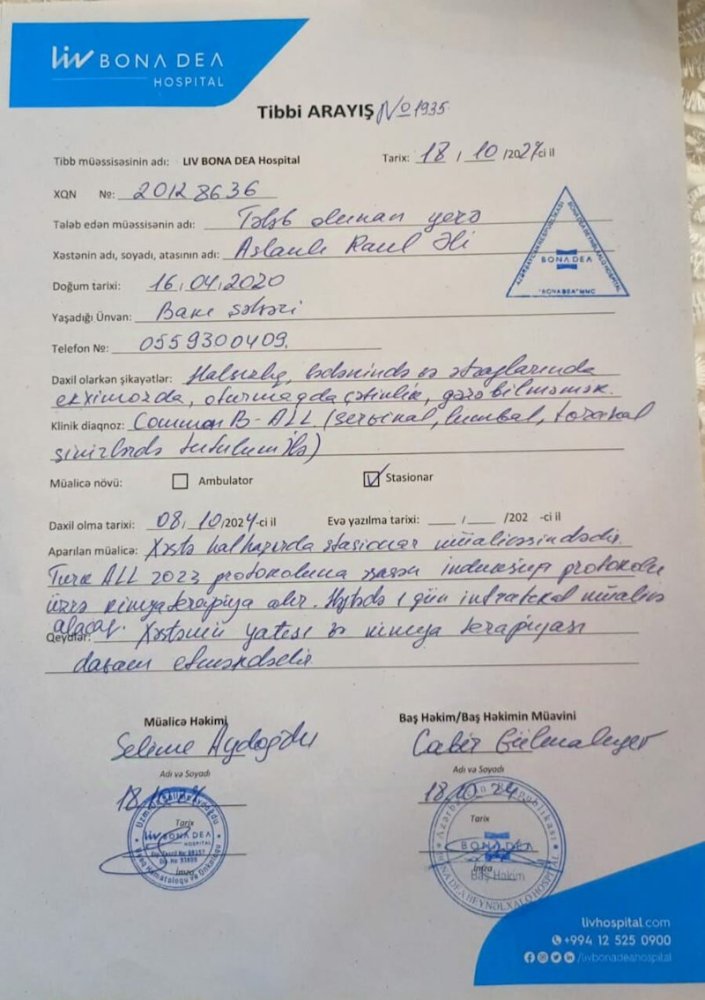 liv BONA DEA
HOSPITAL
Tibbi ARAYIŞ № 1935
Tibb müəssisəsinin adı: LIV BONA DEA Hospital Tarix: 18 / 10 /2024-ci il
XQN №: 20128636
Tələb edən müəssisənin adı: Tələb olunan yerə
Xəstənin adı, soyadı, atasının adı: Aslanlı Raul Əli
Doğum tarixi: 16.04.2020
Yaşadığı Ünvan: Bakı şəhəri
Telefon №: 0559300409.
Daxil olarkən şikayətlər: Halsızlıq, bədənində və ətraflarında
ekximozda, oturmaqda çətinlik, gəzə bilməmək.
Klinik diaqnoz: Common B-ALL (servikal, lumbal, torakal
sinirlərdə tutulum ilə)
Müalicə növü: Ambulator Stasionar
Daxil olma tarixi: 08/10/2024-ci il Evə yazılma tarixi: ___/___/202 -ci il
Aparılan müalicə: Xəstə hal hazırda stasionar müalicəsindədir.
Türk ALL 2023 protokoluna əsasən induksiya protokolu
üzrə kimyaterapiya alır. Həftədə 1 gün intratekal müalicə
alacaq.
Qeydlər: Xəstənin yatışı və kimya terapiyası
davam etməkdədir
Müalicə Həkimi Baş Həkim/Baş Həkimin Müavini
Selime Aydoğdu Cabir Gülmalıyev
Adı və Soyadı Adı və Soyadı
18.10.24 18.10.24
Tarix Tarix
İmza İmza
AZƏRBAYCAN RESPUBLİKASI
BONA DEA
"BONA DEA" MMC
liv BONA DEA
HOSPITAL
Uşaq Hematoloqu və Onkoloqu
Azərbaycan Respublikası
BONA DEA
Baş Həkim
BONA DEA BEYNƏLXALQ HOSPITAL
livhospital.com
+994 12 525 0900
/livbonadeahospital